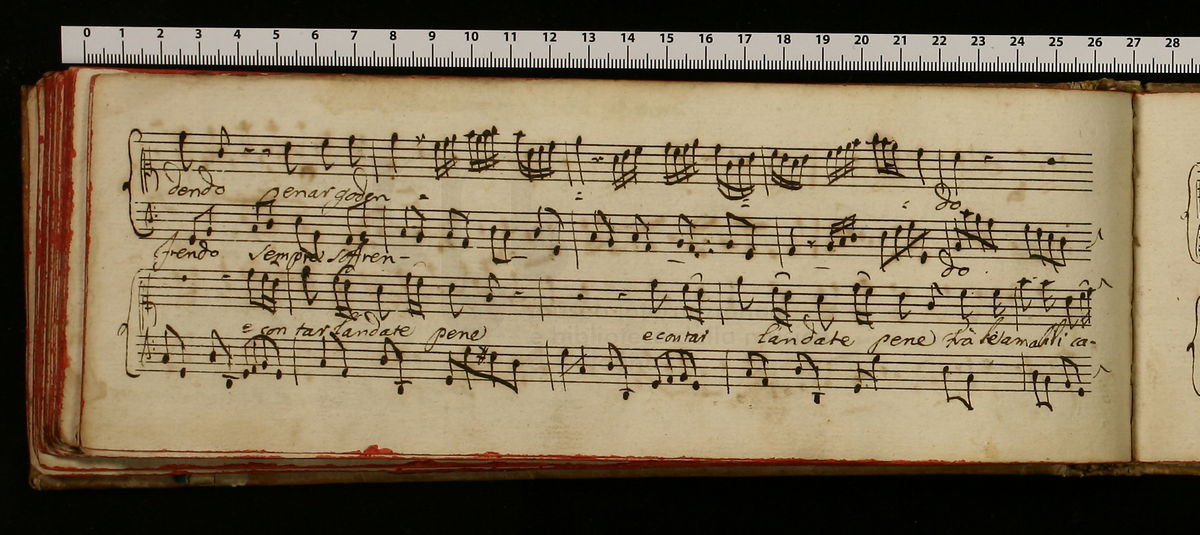 0 1 2 3 4 5 6 7 8 9 10 11 12 13 14 15 16 17 18 19 20 21 22 23 24 25 26 27 28
dendo penar goden do
frendo sempre soffren- do
e con tar tandate pene e contar tandate pene trà te amabili ca-